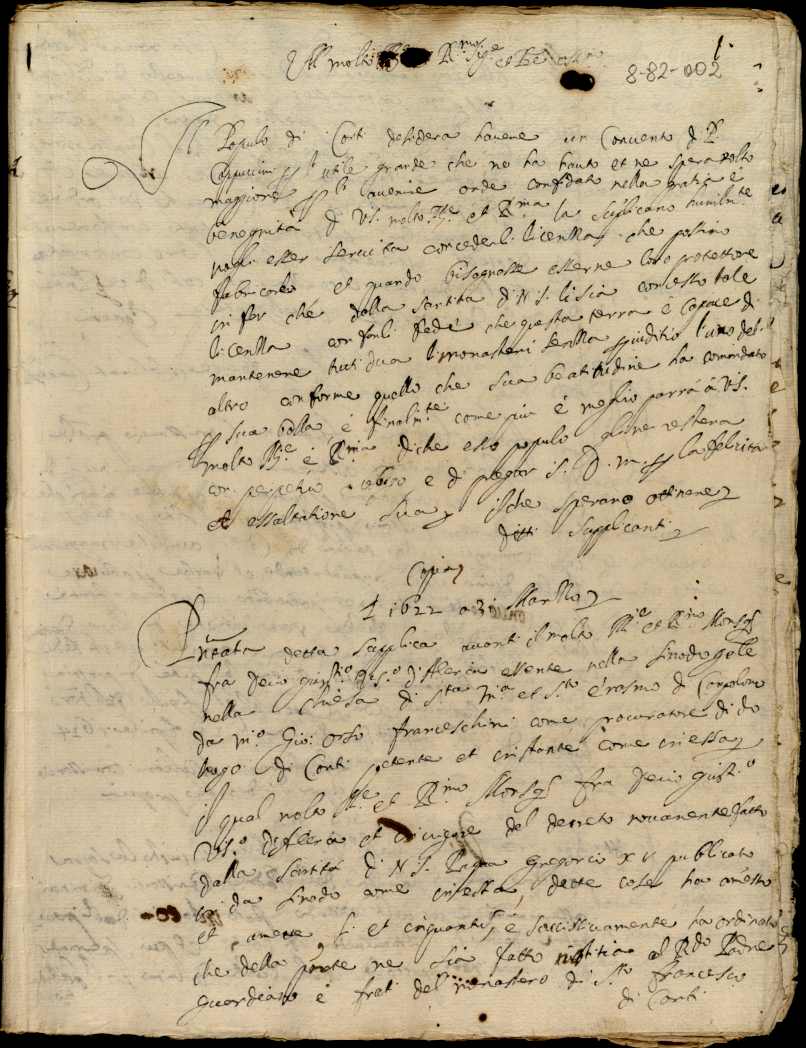 All molto Ill.re R.mo Sig.re et
1.
8-82-002
Il Populo di Corti desidera havere un Convento di P.
Cappuccini p l'utile grande che ne ha hauto et ne spera molto
maggiore p l'avenire onde confidato nella gratia é
benegnità di V.S. molto Ill.e et R.ma la suplicano humilm.te
voler esser servita concederli licenza che possino
fabricarlo et quando bisognasse esserne loro protettore
in far ché dalla santita di N.S. li sia concesso tale
licenza con farli fede che questa terra é capace di
mantenere tutti dua li monasteri senza pⁱuditio l'uno del-
altro conforme quello che sua beatitudine ha comandato
p sua bolla é finalm.te come piu é meglio parrá á V.S.
molto Ill.e é R.ma di che esso populo gline restera
con perpetuo obligo e di pregar S.D.M. p la felicita
et essaltatione sua ilche sperano ottinere
Detti Supplicanti
Copia
1622 a 31 Marzo
P.ntata detta supplica avanti il molto Ill.e et R.mo Monsg.r
fra Decio Giust.o Vis.o d'Aleria essente nella sinodo g.le
nella chiesa di S.ta M.a et S.to Erasmo di Campoloro
da m.o Gio: Orso franceschini come procuratore di do
luogo di Corti petente et instante come in essa
il qual molto Ill.e et R.mo Monsg.r fra Decio Giust.o
Vis.o d'Aleria et in vigore del decreto novamente fatto
dalla santitá di N.S. Papa Gregorio XV publicato
in da sinodo come in essa, dette cose ha amesso
et amette si et in quantu, é succissivamente ha ordinato
che della parte ne sia fatto notitia al R.do Padre
Guardiano é frati del monastero di S.to Francesco
di Corti